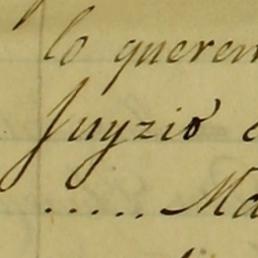 lo querem
Juyzio e
..... Ma